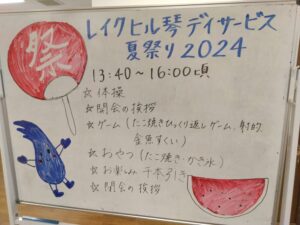 祭
レイクヒル琴デイサービス
夏祭り2024
13:40〜16:00頃
☆体操
☆開会の挨拶
☆ゲーム(たこ焼きひっくり返しゲーム、射的、
金魚すくい)
☆おやつ(たこ焼き・かき氷)
☆お楽しみ 千本引き
☆閉会の挨拶